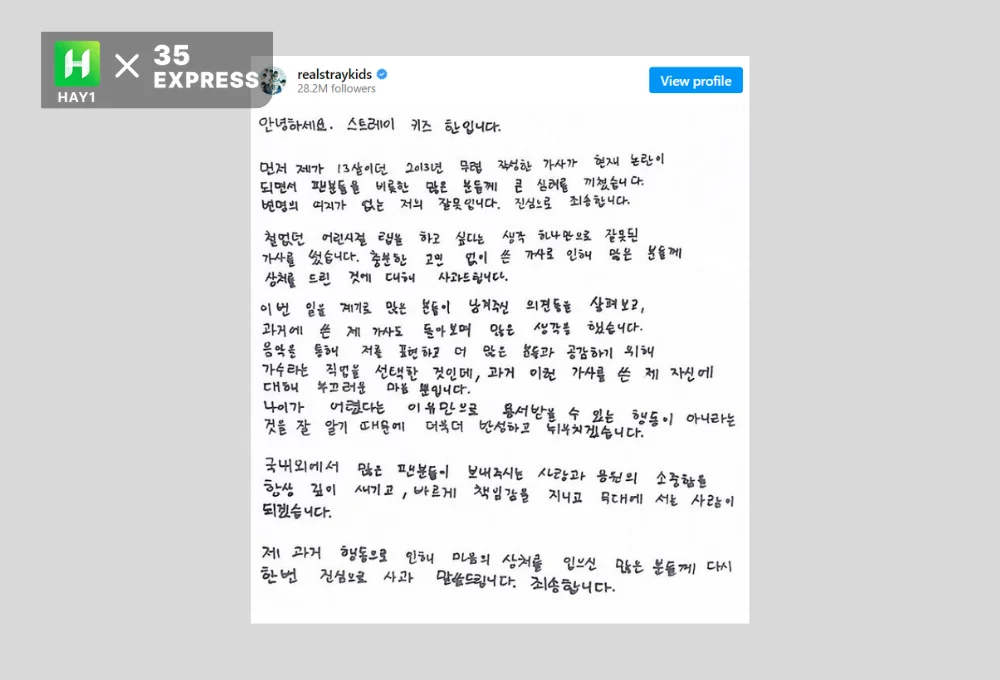 H
HAY1
×
35
EXPRESS
realstraykids
28.2M followers
View profile
안녕하세요. 스트레이 키즈 한입니다.
먼저 제가 13살이던 2013년 무렵 작성한 가사가 현재 논란이
되면서 팬분들을 비롯한 많은 분들께 큰 심려를 끼쳤습니다.
변명의 여지가 없는 저의 잘못입니다. 진심으로 죄송합니다.
철없던 어린시절 랩을 하고 싶다는 생각 하나만으로 잘못된
가사를 썼습니다. 충분한 고민 없이 쓴 가사로 인해 많은 분들께
상처를 드린 것에 대해 사과드립니다.
이번 일을 계기로 많은 분들이 남겨주신 의견들을 살펴보고,
과거에 쓴 제 가사도 돌아보며 많은 생각을 했습니다.
음악을 통해 저를 표현하고 더 많은 분들과 공감하기 위해
가수라는 직업을 선택한 것인데, 과거 이런 가사를 쓴 제 자신에
대해 부끄러운 마음 뿐입니다.
나이가 어렸다는 이유만으로 용서받을 수 있는 행동이 아니라는
것을 잘 알기 때문에 더욱더 반성하고 뉘우치겠습니다.
국내외에서 많은 팬분들이 보내주시는 사랑과 응원의 소중함을
항상 깊이 새기고, 바르게 책임감을 지니고 무대에 서는 사람이
되겠습니다.
제 과거 행동으로 인해 마음의 상처를 입으신 많은 분들께 다시
한번 진심으로 사과 말씀드립니다. 죄송합니다.